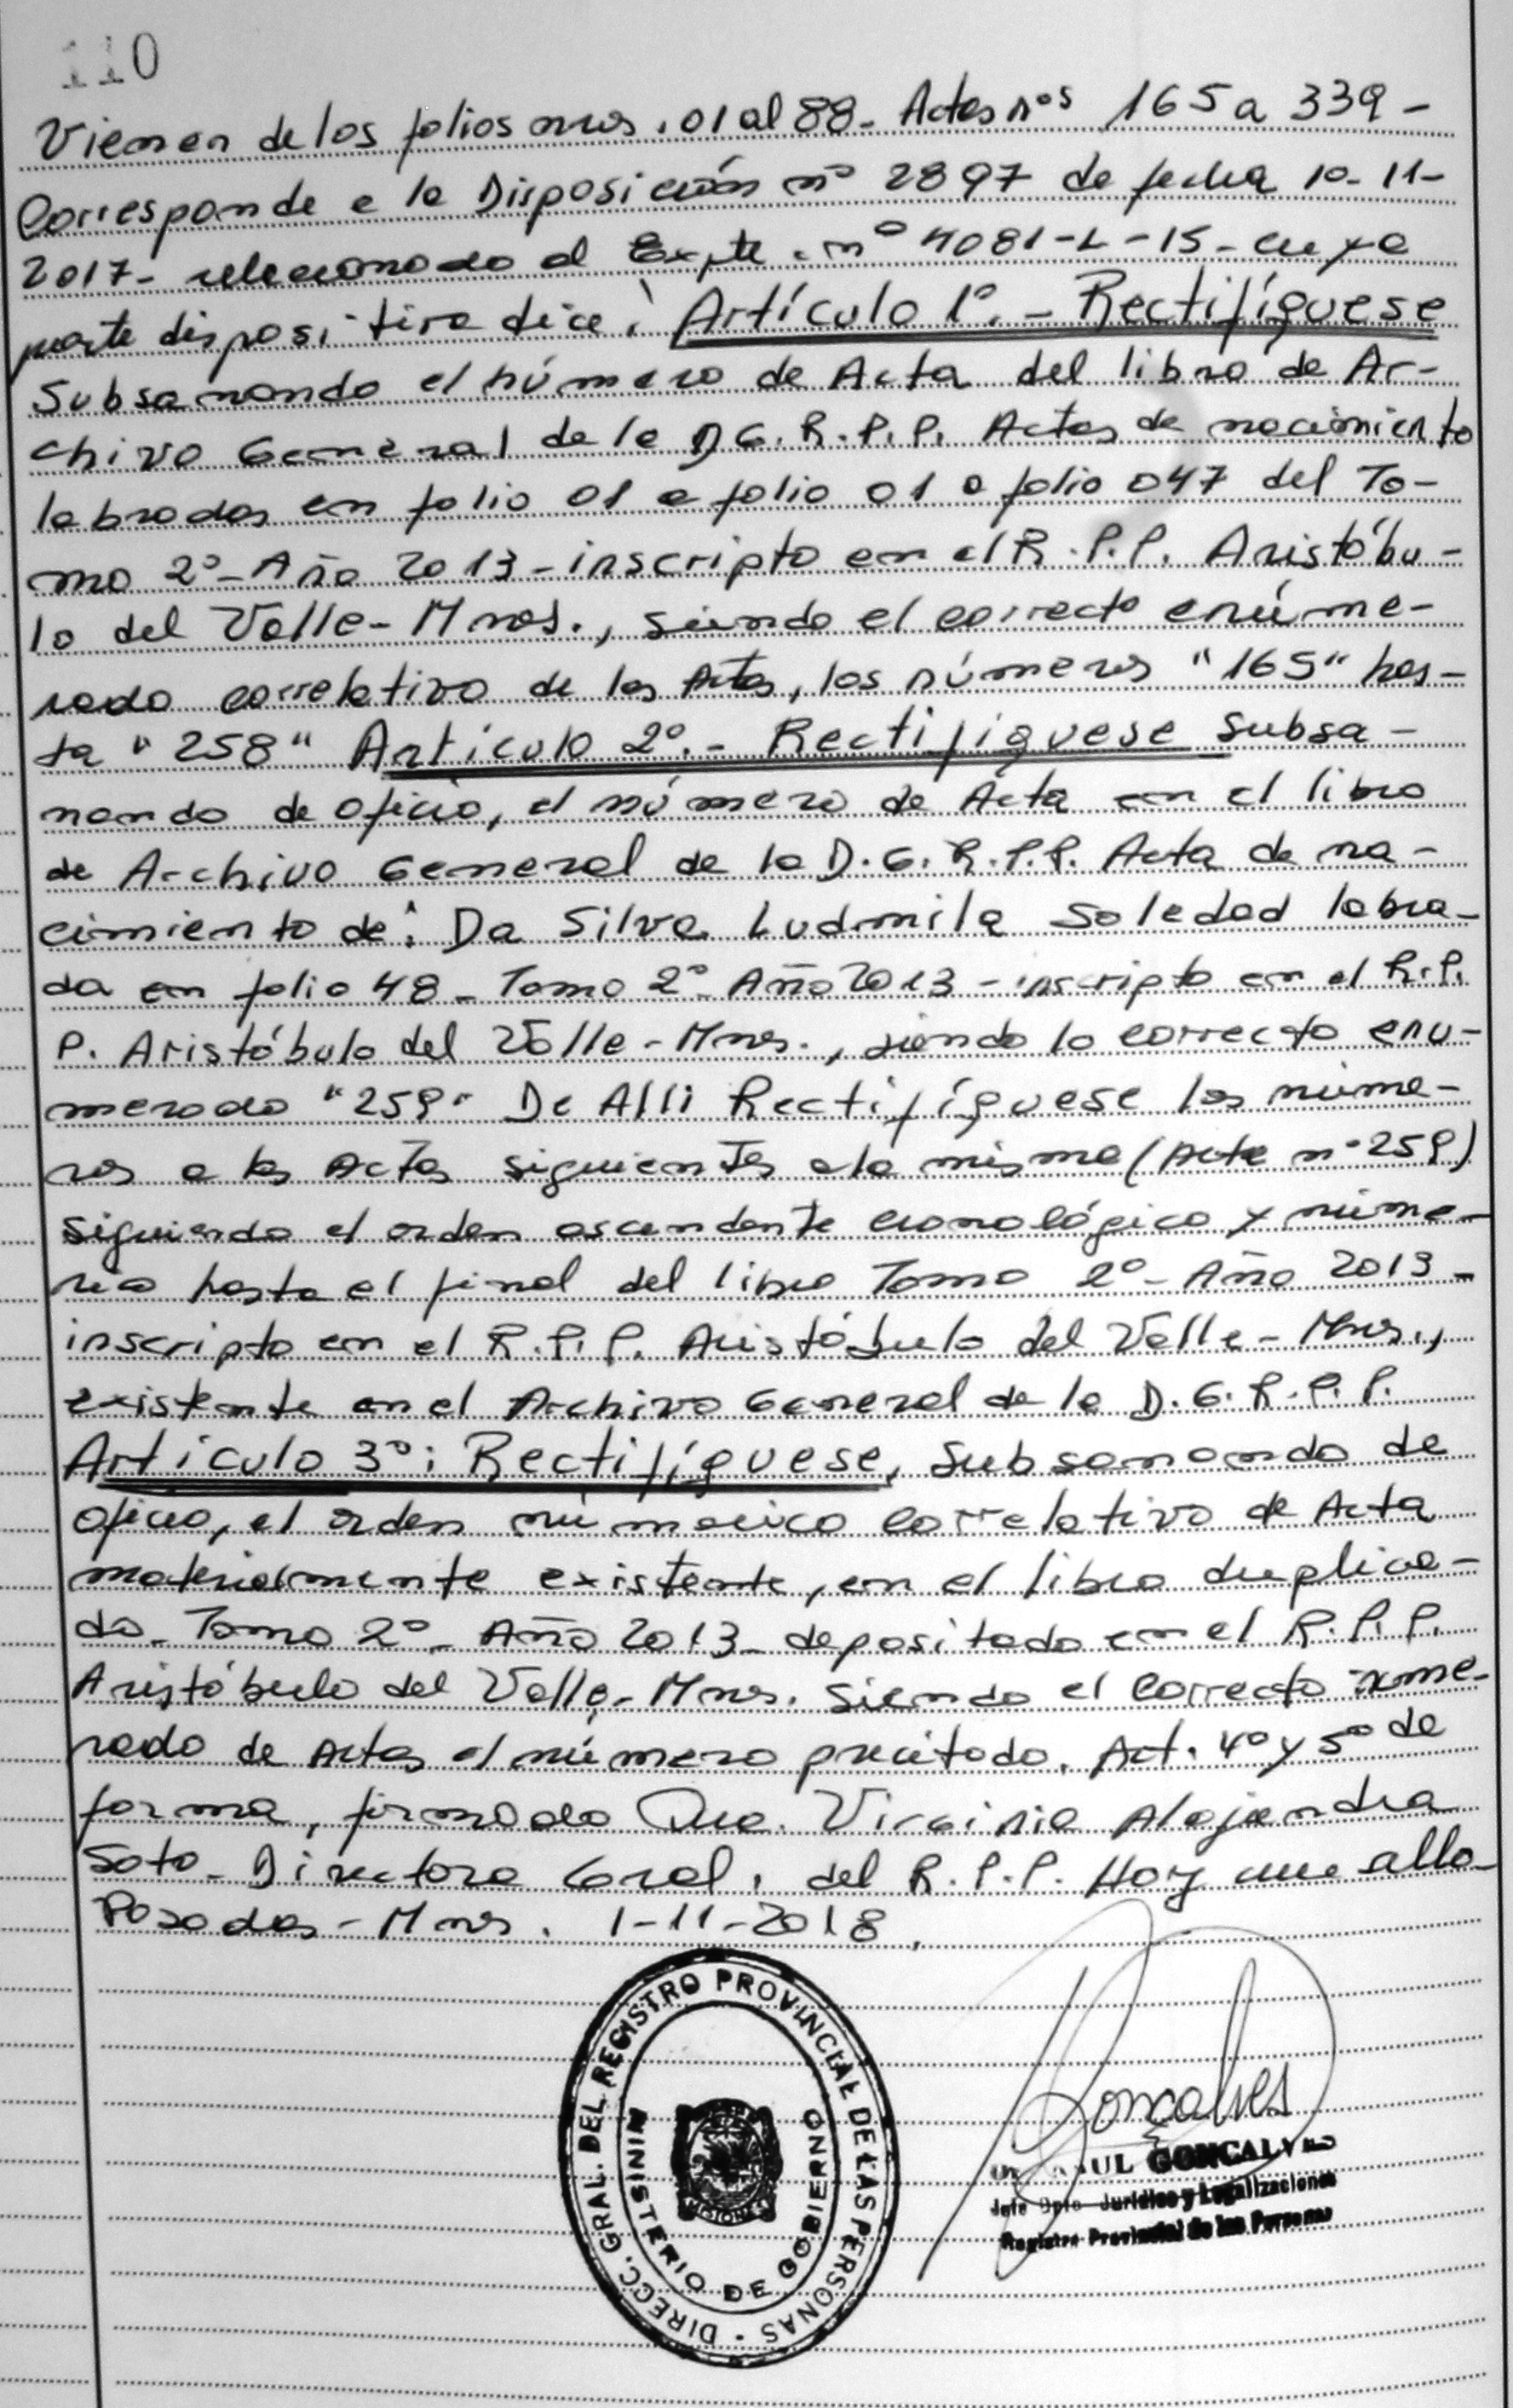 110
Vienen de los folios nros. 01 al 88- Actas nºs 165 a 339-
Corresponde a la Disposición nº 2897 de fecha 10-11-
2017- relacionado al Expte. nº 4081-L-15- cuya
parte dispositiva dice: Artículo 1º.- Rectifíquese
Subsanando el número de Acta del libro de Ar-
chivo General de la D.G.R.P.P. Actas de nacimiento
labradas en folio 01 a folio 01 a folio 047 del To-
mo 2º- Año 2013- inscripto en el R.P.P. Aristóbu-
lo del Valle- Mnes., siendo el correcto enúme-
rado correlativo de las Actas, los números "165" has-
ta "258" Artículo 2º.- Rectifíquese subsa-
nando de oficio, el número de Acta en el libro
de Archivo General de la D.G.R.P.P. Acta de na-
cimiento de: Da Silva Ludmila Soledad labra-
da en folio 48- Tomo 2º- Año 2013- inscripto en el R.P.
P. Aristóbulo del Valle- Mnes., siendo lo correcto enu-
merado "259" De Alli Rectifíquese los núme-
ros a las Actas siguientes a la misma (Acta nº 259)
siguiendo el orden ascendente cronológico y núme-
rico hasta el final del libro Tomo 2º- Año 2013-
inscripto en el R.P.P. Aristóbulo del Valle- Mnes.,
existente en el Archivo General de la D.G.R.P.P.
Artículo 3º: Rectifíquese, Subsanando de
oficio, el orden númerico correlativo de Acta
materialmente existente, en el libro duplica-
do- Tomo 2º- Año 2013- depositado en el R.P.P.
Aristóbulo del Valle- Mnes. Siendo el correcto nume-
rado de Actas el número precitado. Art. 4º y 5º de
forma, firmado Dra. Virginia Alejandra
Soto- Directora Gral. del R.P.P. Hay un sello-
Posadas- Mnes. 1-11-2018.
DIRECC. GRAL. DEL REGISTRO PROVINCIAL DE LAS PERSONAS -
MINISTERIO DE GOBIERNO
MISIONES
Goncalves
GONCALVES
Jefe Dpto. Jurídico y Legalizaciones
Registro Provincial de las Personas